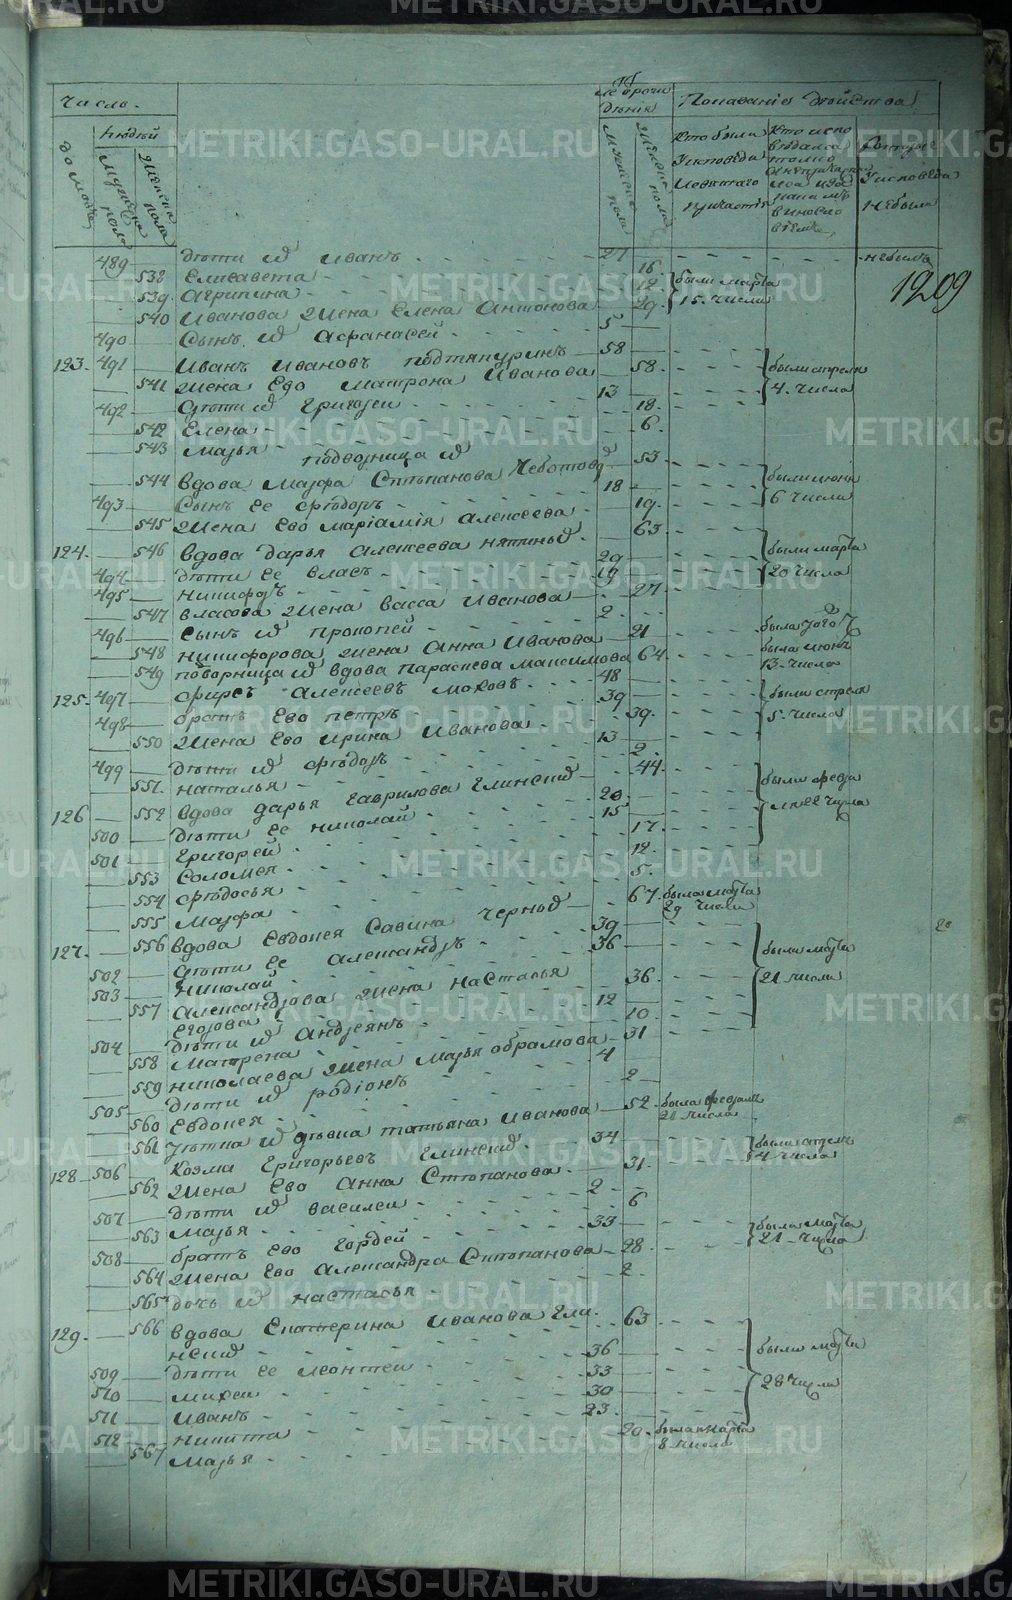 Числь.
домовъ
людѣй
мужеска пола
женска пола
лѣ
мужеска пола
женска пола
Показаніе
Кто были
исповѣди
причастія
Кто испо
исповѣди
небыли
489 дѣти их Иванъ 27 небыли
538 Елисавета 16
1209
539 Агрипина 12 были марта
540 Иванова жена Елена Антонова 29 15 числа
490 Сынъ их Афанасей 5
123 491 Иванъ Ивановъ Подтяпуринъ 58
541 жена Ево Матрона Иванова 58 были апреля
492 дѣти их Григорей 13 4 числа
542 Елена 18
543 Марья 6
подворница их
544 вдова Марфа Стѣпанова 53 были июня
493 Сынъ ее Фѣдоръ 18 6 числа
545 жена Ево Маріамія Алексеева 19
124 546 вдова Дарья Алексеева 63 были марта
494 дѣти ее Власъ 29 20 числа
495 Никифоръ 19
547 Власова жена Васса Иванова 27
496 Сынъ их Прокопей 2
548 Никифорова жена Анна Иванова 21
549 подворница их вдова Параскева Максимова 64 13 числа
125 497 Фирсъ Алексеевъ Моховъ 48 были апреля
498 братъ Ево Петръ 39 5 числа
550 жена Ево Ирина Иванова 39
499 дѣти их Фѣдоръ 13
551 Наталья 2
126 552 вдова Дарья Гаврилова Глинских 44 были февра
500 дѣти ее Николай 20 ля 22 числа
501 Григорей 15
553 Соломея 17
554 Фѣдосья 12
555 Марфа 5
127 556 вдова Евдокея Савина Черных 67 была марта 29 числа
502 дѣти ее Александръ 39 были марта
503 Николай 36 21 числа
557 Александрова жена Настасья
Егорова 36
504 дѣти их Андреянъ 12
558 Матрена 10
559 Николаева жена Марья Абрамова 31
505 дѣти их Родіонъ 4
560 Евдокея 2
561 дѣвка Татьяна Иванова 52 была февраля
21 числа
128 506 Козма Григорьевъ Глинских 34 были апреля
562 жена Ево Анна Стѣпанова 31 4 числа
507 дѣти их Василей 2
563 Марья 6
508 братъ Ево Гордей 33 были марта
564 жена Ево Александра Стѣпанова 28 21 числа
565 дочь их Настасья 2
129 566 вдова Екатерина Иванова Гли
нских 63 были марта
509 дѣти ее Леонтей 36 28 числа
510 Михей 33
511 Иванъ 30
512 Никита 23
567 Марья 20 была марта
8 числа
METRIKI.GASO-URAL.RU